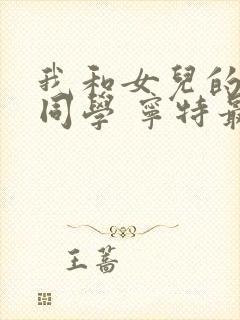 我和女兒的
同學 寧特最
王蔷